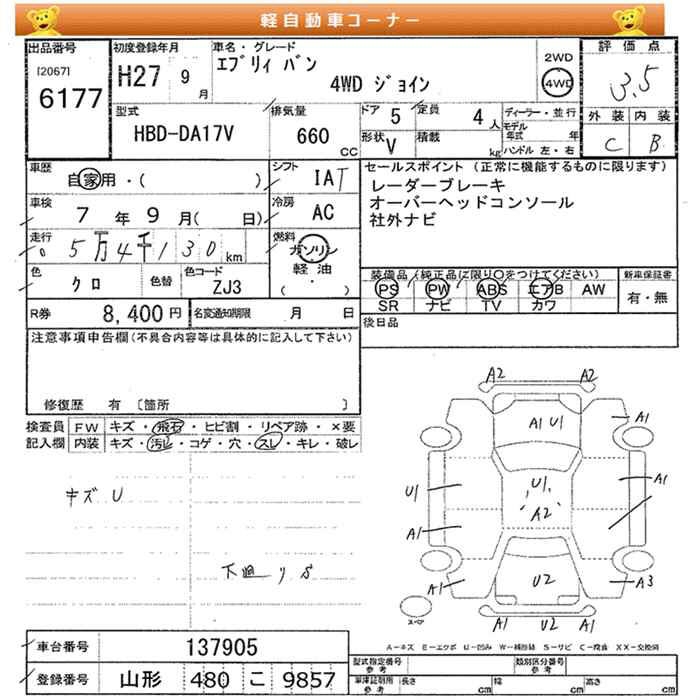 軽自動車コーナー
出品番号 初度登録年月 車名・グレード 2WD 評価点
[2067] H27 9月 エブリィ バン 4WD
6177 4WD ジョイン 3.5
型式 排気量 ドア 5 定員 4人 ディーラー・並行 外装 内装
HBD-DA17V 660cc 形状 V 積載 kg モデル年式 年 C B
ハンドル 左・右
車歴 自家用・( ) シフト IAT セールスポイント (正常に機能するものに限ります)
レーダーブレーキ
車検 7年9月( 日) 冷房 AC オーバーヘッドコンソール
社外ナビ
走行 5万4千130km 燃料 ガソリン
軽油
( ・ )
色 クロ 色替 色コード ZJ3 装備品(純正品に限り○をつけてください) 新車保証書
PS PW ABS エアB AW 有・無
SR ナビ TV カワ
R券 8,400円 名変通知期限 月 日 後日品
注意事項申告欄(不具合内容等は具体的に記入して下さい)
修復歴 有 〔箇所 〕
検査員 FW キズ・飛石・ヒビ割・リペア跡・×要
記入欄 内装 キズ・汚レ・コゲ・穴・スレ・キレ・破レ
キズ U
下廻りS
A2 A2
A1 U1 A1
U1 U1 A1
A2
A1
A1 U2 A3
スペア A1 U2 A1
A-キズ E-エクボ U-凹み W-補修跡 S-サビ C-腐食 XX-交換済
車台番号 137905
登録番号 山形 480 こ 9857
型式指定番号 参考 類別区分番号 参考
車庫証明用 参考 長さ cm 幅 cm 高さ cm